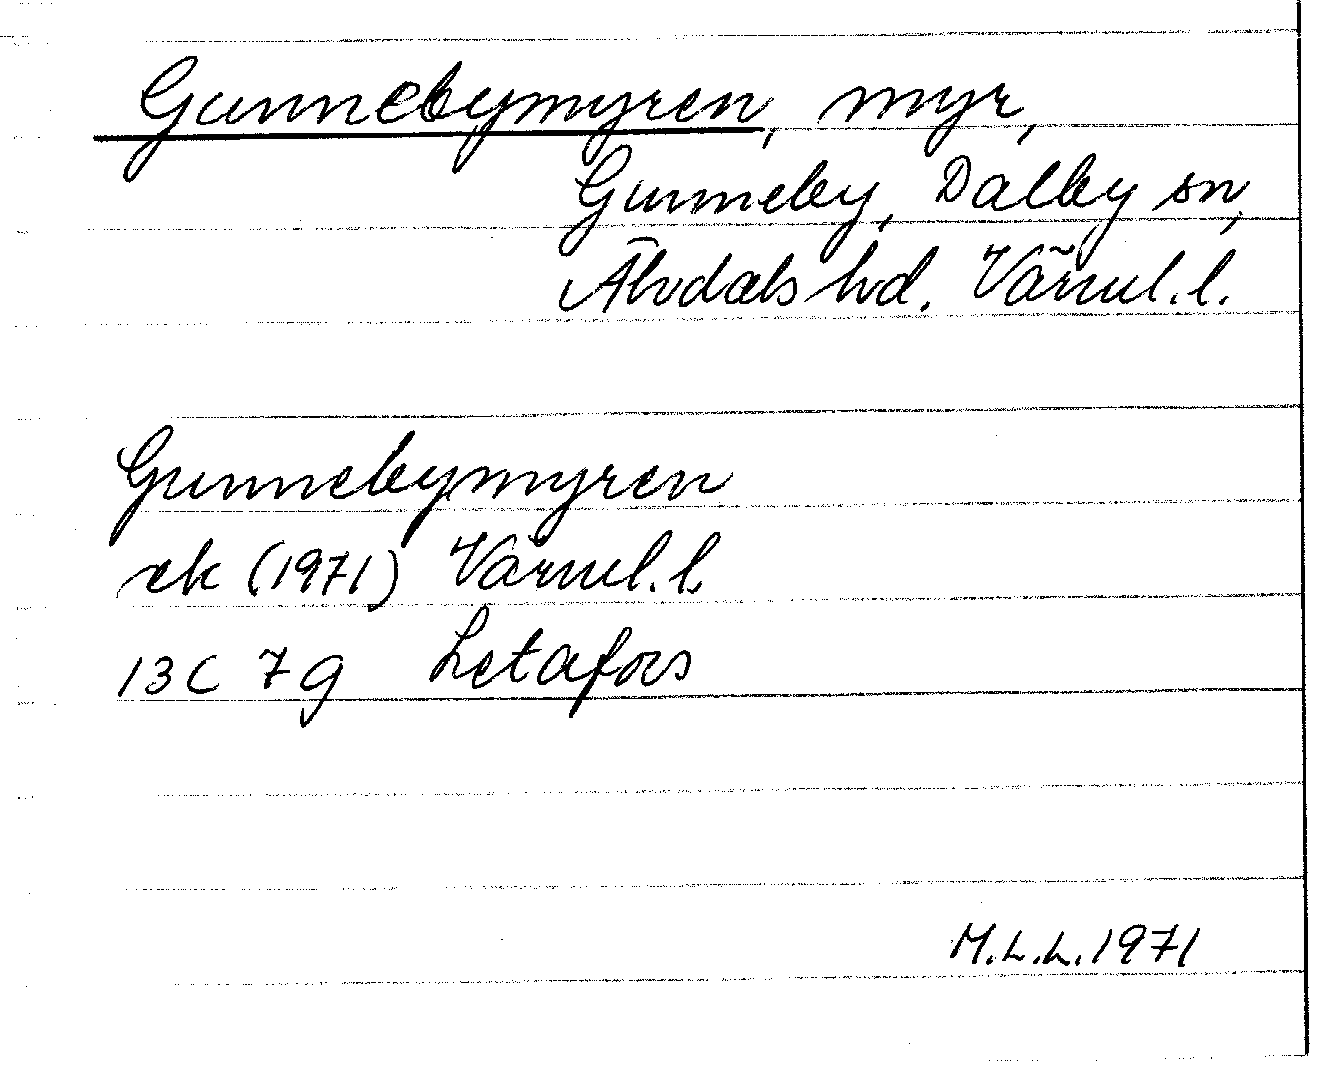 Gunnebymyren, myr,
Gunneby, Dalby sn,
Älvdals hd. Värml. l.
Gunnebymyren
ek (1971) Värml. l.
13C 7g Letafors
M.L.L. 1971